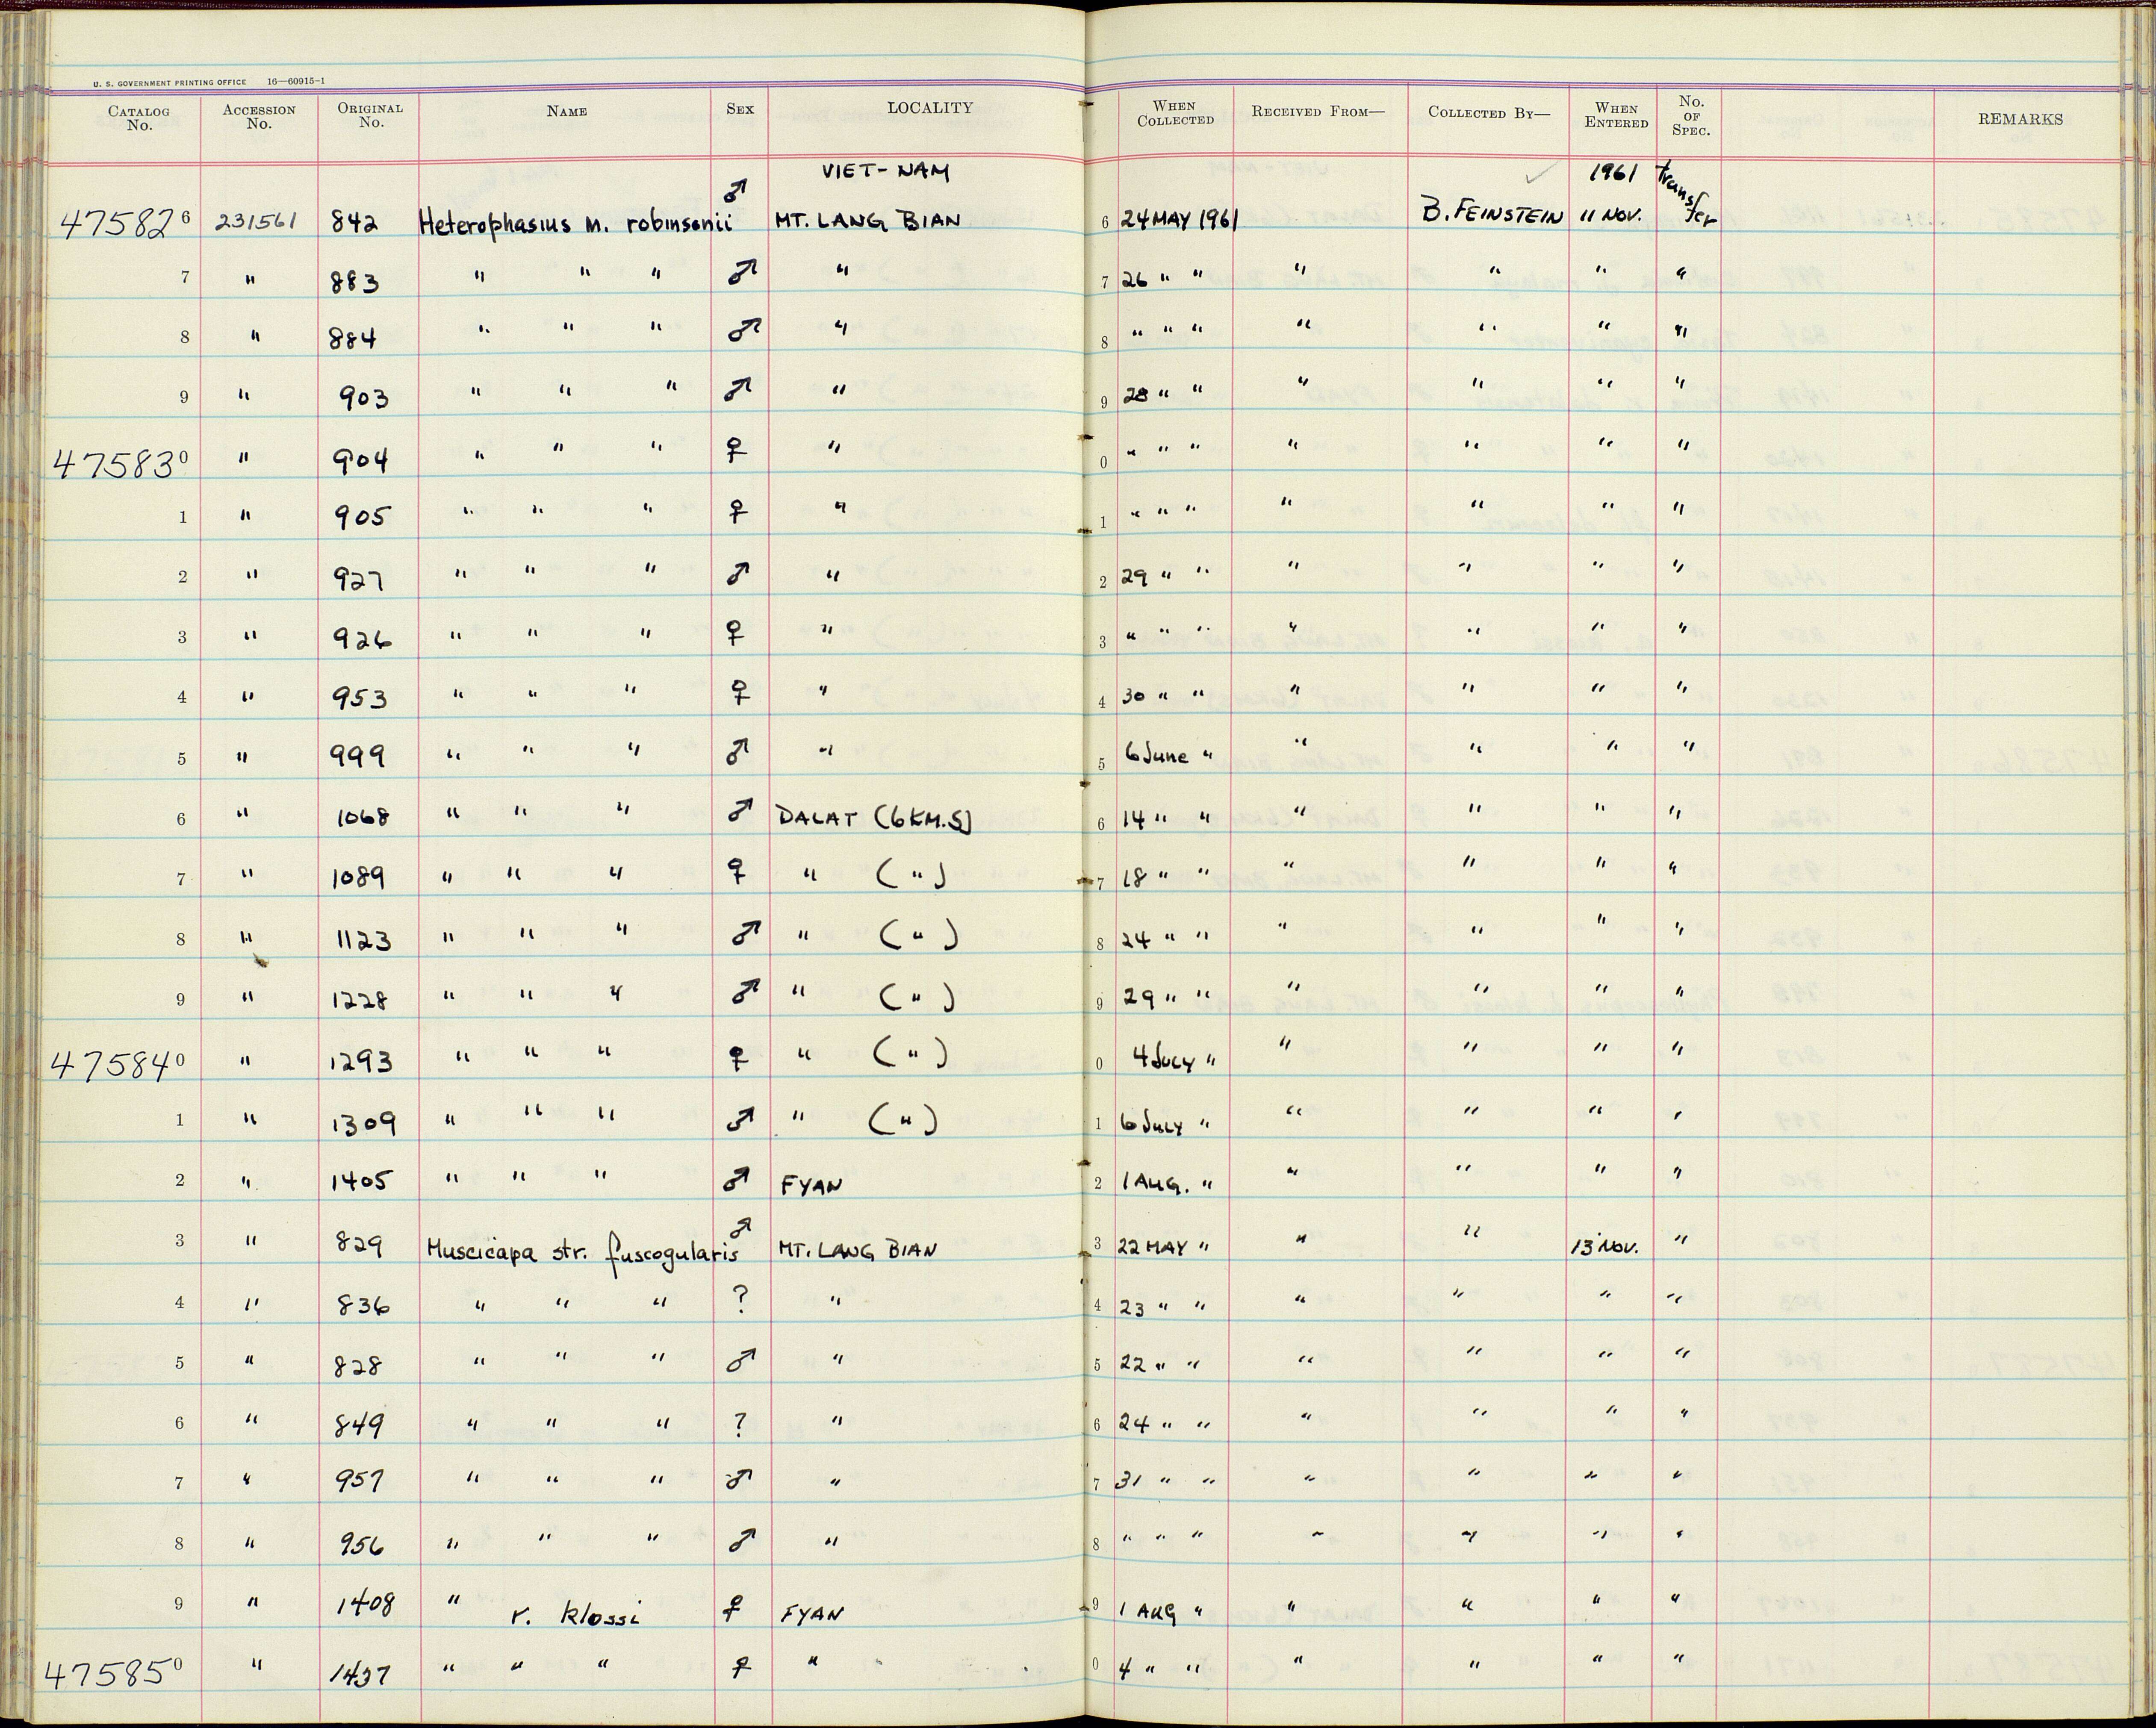 U. S. GOVERNMENT PRINTING OFFICE 16—60915-1
CATALOG No. ACCESSION No. ORIGINAL No. NAME SEX LOCALITY WHEN COLLECTED RECEIVED FROM— COLLECTED BY— WHEN ENTERED No. OF SPEC. REMARKS
VIET-NAM ✓ 1961 transfer
475826 231561 842 Heterophasius m. robinsonii ♂ MT. LANG BIAN 6 24 MAY 1961 B. FEINSTEIN 11 NOV.
7 " 883 " " " ♂ " 7 26 " " " " " "
8 " 884 " " " ♂ " 8 " " " " " " "
9 " 903 " " " ♂ " 9 28 " " " " " "
475830 " 904 " " " ♀ " 0 " " " " " " "
1 " 905 " " " ♀ " 1 " " " " " " "
2 " 927 " " " ♂ " 2 29 " " " " " "
3 " 926 " " " ♀ " 3 " " " " " " "
4 " 953 " " " ♀ " 4 30 " " " " " "
5 " 999 " " " ♂ " 5 6 June " " " " "
6 " 1068 " " " ♂ DALAT (6KM.S) 6 14 " " " " " "
7 " 1089 " " " ♀ " ( " ) 7 18 " " " " " "
8 " 1123 " " " ♂ " ( " ) 8 24 " " " " " "
9 " 1228 " " " ♂ " ( " ) 9 29 " " " " " "
475840 " 1293 " " " ♀ " ( " ) 0 4 JULY " " " " "
1 " 1309 " " " ♂ " ( " ) 1 6 JULY " " " " "
2 " 1405 " " " ♂ FYAN 2 1 AUG. " " " " "
3 " 829 Muscicapa str. fuscogularis ♂ MT. LANG BIAN 3 22 MAY " " " 13 NOV. "
4 " 836 " " " ? " 4 23 " " " " " "
5 " 828 " " " ♂ " 5 22 " " " " " "
6 " 849 " " " ? " 6 24 " " " " " "
7 " 957 " " " ♂ " 7 31 " " " " " "
8 " 956 " " " ♂ " 8 " " " " " " "
9 " 1408 " r. klossi ♀ FYAN 9 1 AUG " " " " "
475850 " 1437 " " " ♀ " 0 4 " " " " " "